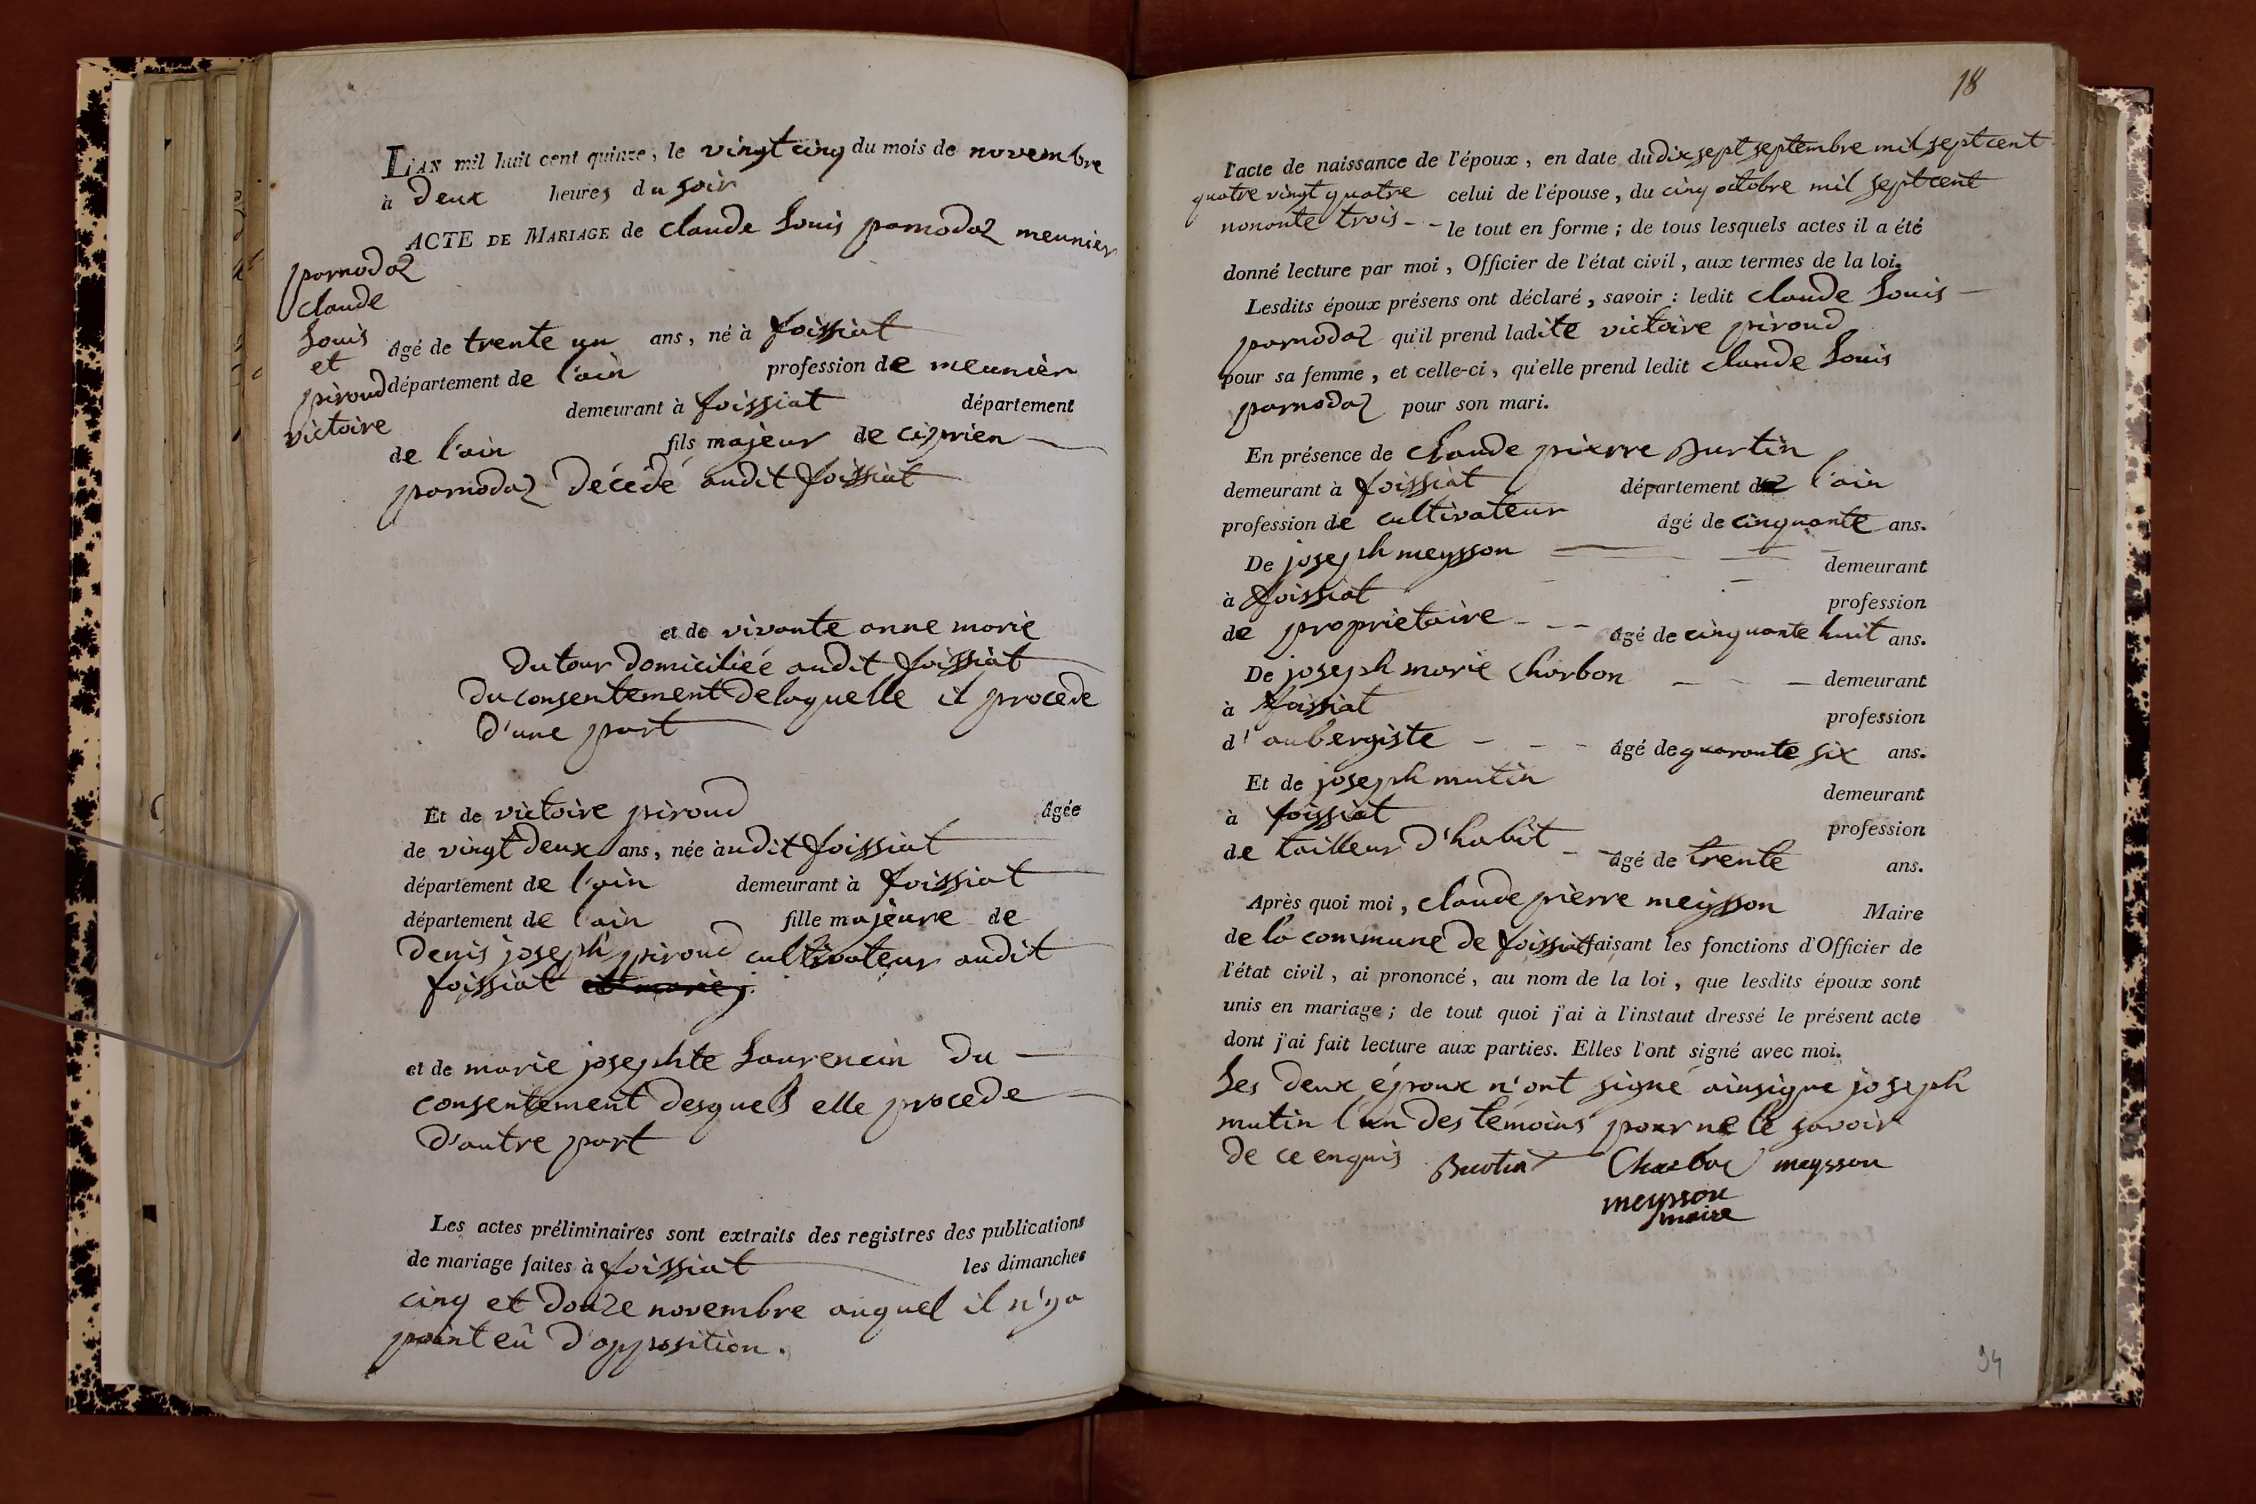 L'AN mil huit cent quinze, le vingt cinq du mois de novembre
à Deux heures du soir
ACTE DE MARIAGE de claude Louis parnodaz meunier
parnodaz
claude
Louis
et
piroud
victoire
âgé de trente un ans, né à foissiat
département de l'ain profession de meunier
demeurant à foissiat département
de l'ain fils majeur de ciprien
parnodaz Décédé audit foissiat
et de vivante anne marie
Dutour Domiciliée audit foissiat
Du consentement De laquelle il procede
D'une part
Et de victoire piroud âgée
de vingt Deux ans, née à audit foissiat
département de l'ain demeurant à foissiat
département de l'ain fille majeure de
Denis joseph piroud cultivateur audit
foissiat
et de marie josephte Laurencin Du
consentement Desquels elle procede
D'autre part
Les actes préliminaires sont extraits des registres des publications
de mariage faites à foissiat les dimanches
cinq et Douze novembre auquel il n'ya
point eû D'opposition.
18
l'acte de naissance de l'époux, en date du Dix sept septembre mil sept cent
quatre vingt quatre celui de l'épouse, du cinq octobre mil sept cent
nonante trois - - le tout en forme ; de tous lesquels actes il a été
donné lecture par moi, Officier de l'état civil, aux termes de la loi.
Lesdits époux présens ont déclaré, savoir : ledit claude Louis
parnodaz qu'il prend ladite victoire piroud
pour sa femme, et celle-ci, qu'elle prend ledit claude Louis
parnodaz pour son mari.
En présence de claude pierre Burtin
demeurant à foissiat département de l'ain
profession de cultivateur âgé de cinquante ans.
De joseph meysson demeurant
à foissiat profession
de propriétaire - - - âgé de cinquante huit ans.
De joseph marie Charbon - - - demeurant
à foissiat profession
d'aubergiste - - - âgé de quaronte six ans.
Et de joseph mutin demeurant
à foissiat profession
de tailleur D'habit - - âgé de trente ans.
Après quoi moi, claude pierre meysson Maire
de la commune de foissiat faisant les fonctions d'Officier de
l'état civil, ai prononcé, au nom de la loi, que lesdits époux sont
unis en mariage ; de tout quoi j'ai à l'instaut dressé le présent acte
dont j'ai fait lecture aux parties. Elles l'ont signé avec moi.
Les deux époux n'ont signé ainsique joseph
mutin l'un Des témoins pour ne le savoir
De ce enquis Burtin Charbon meysson
meysson
maire
94